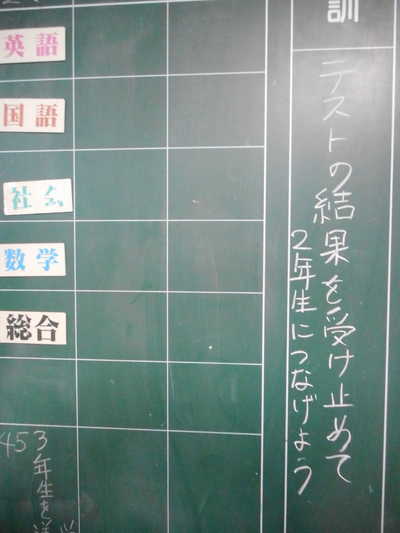 訓
テストの結果を受け止めて
2年生につなげよう
英語
国語
社会
数学
総合
3年生を
45